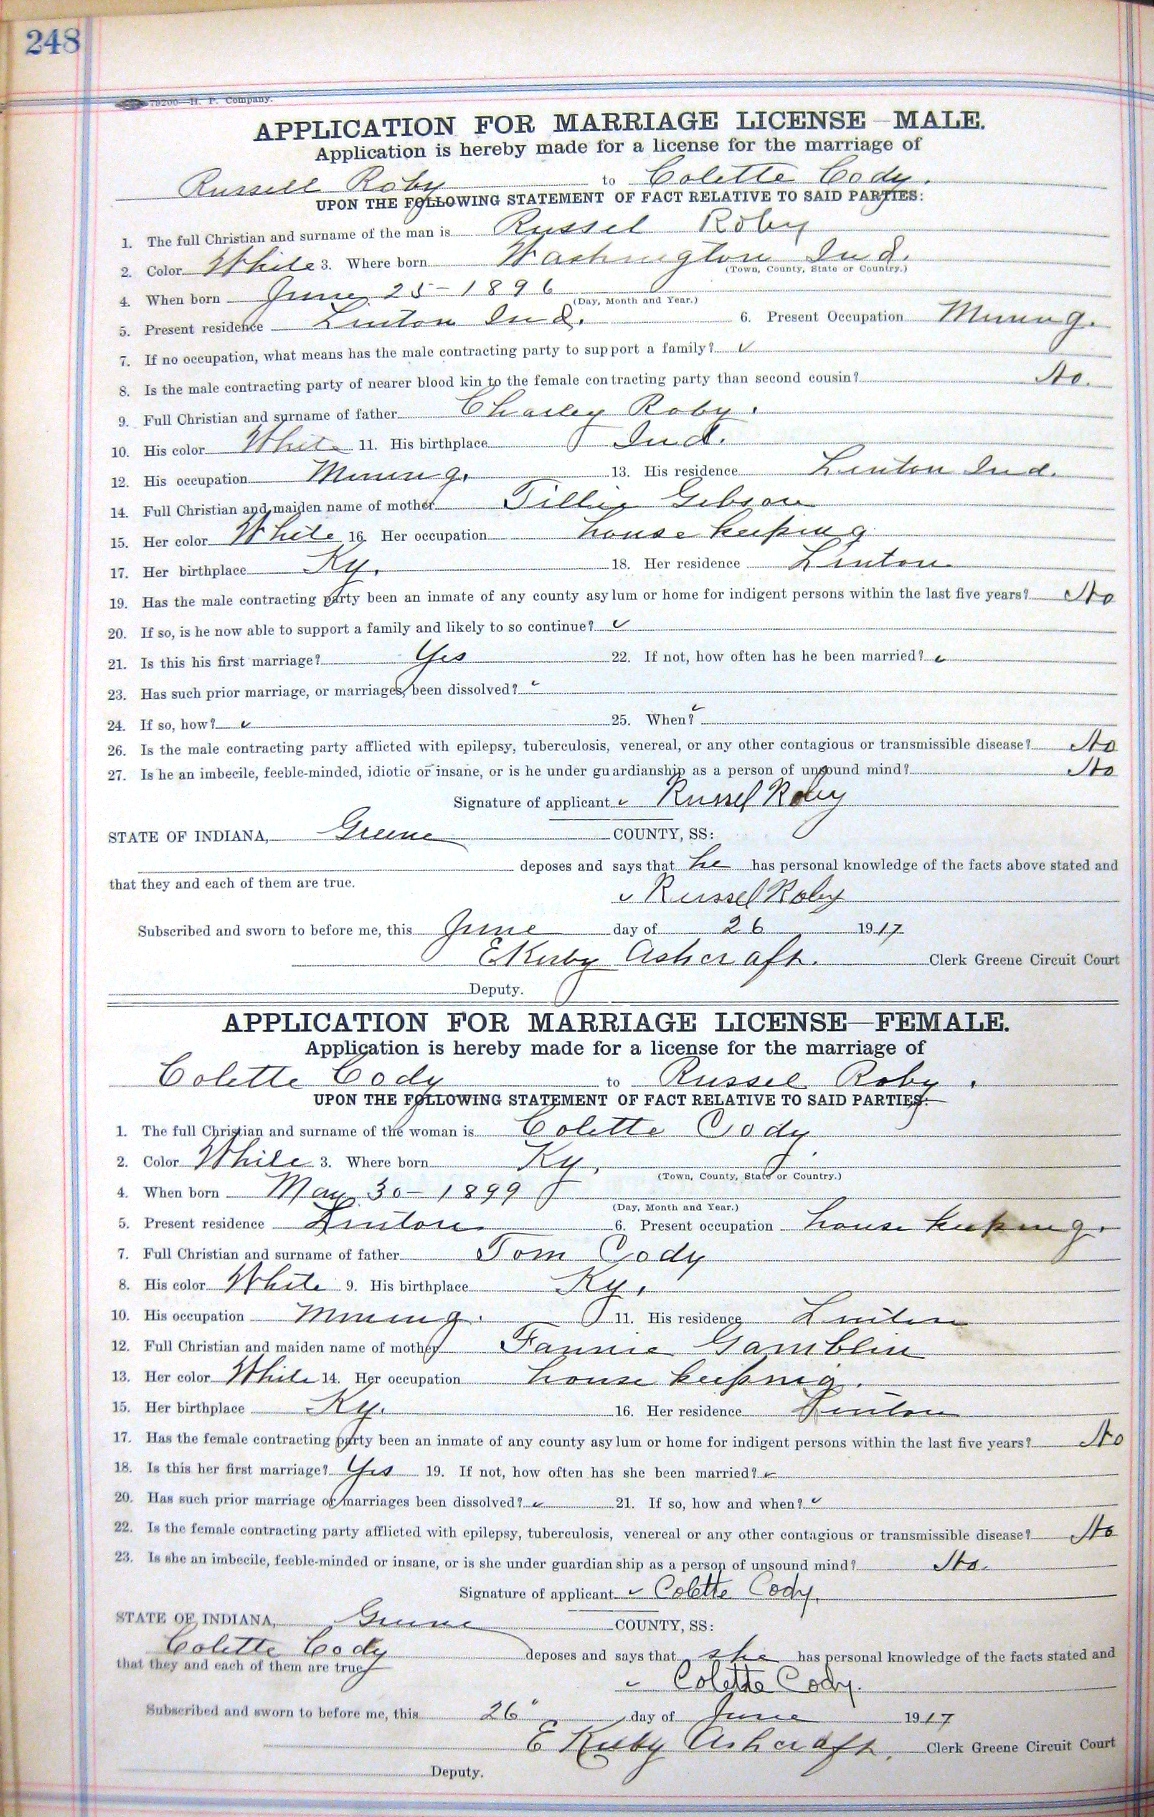 248
79200—H. P. Company.
APPLICATION FOR MARRIAGE LICENSE—MALE.
Application is hereby made for a license for the marriage of
Russell Roby to Colette Cody.
UPON THE FOLLOWING STATEMENT OF FACT RELATIVE TO SAID PARTIES:
1. The full Christian and surname of the man is Russel Roby
2. Color White 3. Where born Washington Ind.
(Town, County, State or Country.)
4. When born June 25-1896
(Day, Month and Year.)
5. Present residence Linton Ind. 6. Present Occupation Mining.
7. If no occupation, what means has the male contracting party to support a family? ✓
8. Is the male contracting party of nearer blood kin to the female contracting party than second cousin? No.
9. Full Christian and surname of father Charley Roby.
10. His color White 11. His birthplace Ind.
12. His occupation Mining. 13. His residence Linton Ind.
14. Full Christian and maiden name of mother Tillie Gibson
15. Her color White 16. Her occupation house keeping
17. Her birthplace Ky. 18. Her residence Linton
19. Has the male contracting party been an inmate of any county asylum or home for indigent persons within the last five years? No
20. If so, is he now able to support a family and likely to so continue? ✓
21. Is this his first marriage? Yes 22. If not, how often has he been married? ✓
23. Has such prior marriage, or marriages, been dissolved? ✓
24. If so, how? ✓ 25. When? ✓
26. Is the male contracting party afflicted with epilepsy, tuberculosis, venereal, or any other contagious or transmissible disease? No
27. Is he an imbecile, feeble-minded, idiotic or insane, or is he under guardianship as a person of unsound mind? No
Signature of applicant ✓ Russel Roby
STATE OF INDIANA, Greene COUNTY, SS:
deposes and says that he has personal knowledge of the facts above stated and
that they and each of them are true.
✓ Russel Roby
Subscribed and sworn to before me, this June day of 26 1917
E Kirby Ashcraft. Clerk Greene Circuit Court
Deputy.
APPLICATION FOR MARRIAGE LICENSE—FEMALE.
Application is hereby made for a license for the marriage of
Colette Cody to Russel Roby.
UPON THE FOLLOWING STATEMENT OF FACT RELATIVE TO SAID PARTIES:
1. The full Christian and surname of the woman is Colette Cody.
2. Color White 3. Where born Ky.
(Town, County, State or Country.)
4. When born May 30-1899
(Day, Month and Year.)
5. Present residence Linton 6. Present occupation house keeping.
7. Full Christian and surname of father Tom Cody
8. His color White 9. His birthplace Ky.
10. His occupation Mining. 11. His residence Linton
12. Full Christian and maiden name of mother Fannie Gamblin
13. Her color White 14. Her occupation house keeping.
15. Her birthplace Ky. 16. Her residence Linton
17. Has the female contracting party been an inmate of any county asylum or home for indigent persons within the last five years? No
18. Is this her first marriage? Yes 19. If not, how often has she been married? ✓
20. Has such prior marriage or marriages been dissolved? ✓ 21. If so, how and when? ✓
22. Is the female contracting party afflicted with epilepsy, tuberculosis, venereal or any other contagious or transmissible disease? No
23. Is she an imbecile, feeble-minded or insane, or is she under guardianship as a person of unsound mind? No.
Signature of applicant ✓ Colette Cody.
STATE OF INDIANA, Greene COUNTY, SS:
Colette Cody deposes and says that she has personal knowledge of the facts stated and
that they and each of them are true
✓ Colette Cody.
Subscribed and sworn to before me, this 26" day of June 1917
E Kirby Ashcraft. Clerk Greene Circuit Court
Deputy.